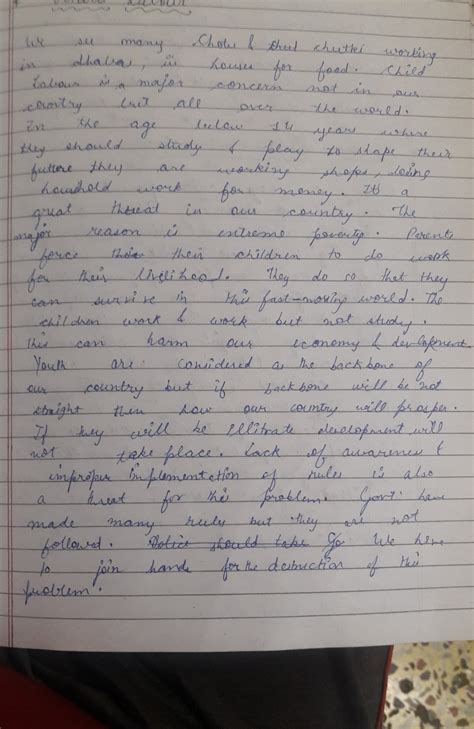 We see many Chotu & chutki working
in dhabas, in houses for food. Child
Labour is a major concern not in our
country but all over the world.
In the age below 14 years where
they should study & play to shape their
future they are working shops, doing
household work for money. It's a
great threat in our country. The
major reason is extreme poverty. Parents
force their children to do work
for their livelihood. They do so that they
can survive in this fast-moving world. The
children work & work but not study.
This can harm our economy & development.
Youth are considered as the backbone of
our country but if backbone will be not
straight then how our country will prosper.
If they will be illitrate development will
not take place. Lack of awareness &
improper implementation of rules is also
a threat for this problem. Govt. have
made many rules but they are not
followed. Police should take Go We have
to join hands for the destruction of this
problem.